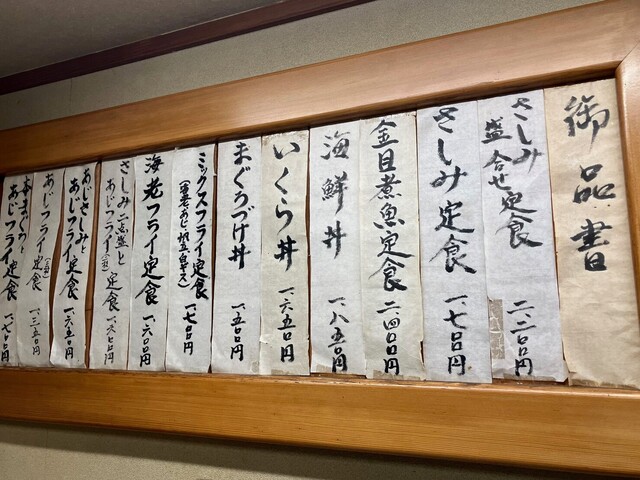 御品書
さしみ盛合せ定食 二、二〇〇円
さしみ定食 一、七〇〇円
金目煮魚定食 二、四〇〇円
海鮮丼 一、八五〇円
いくら丼 一、六五〇円
まぐろづけ丼 一、五〇〇円
ミックスフライ定食 一、七〇〇円
海老フライ定食 一、六〇〇円
さしみ二点盛と
あじフライ 定食
あじさしみと
あじフライ定食 一、六五〇円
あじフライ定食 一、三五〇円
まぐろと
あじフライ定食 一、八〇〇円